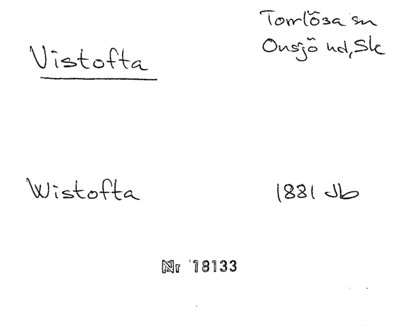 Torrlösa sn
Vistofta
Onsjö hd, Sk
Wistofta
1881 Jb
Nr 18133